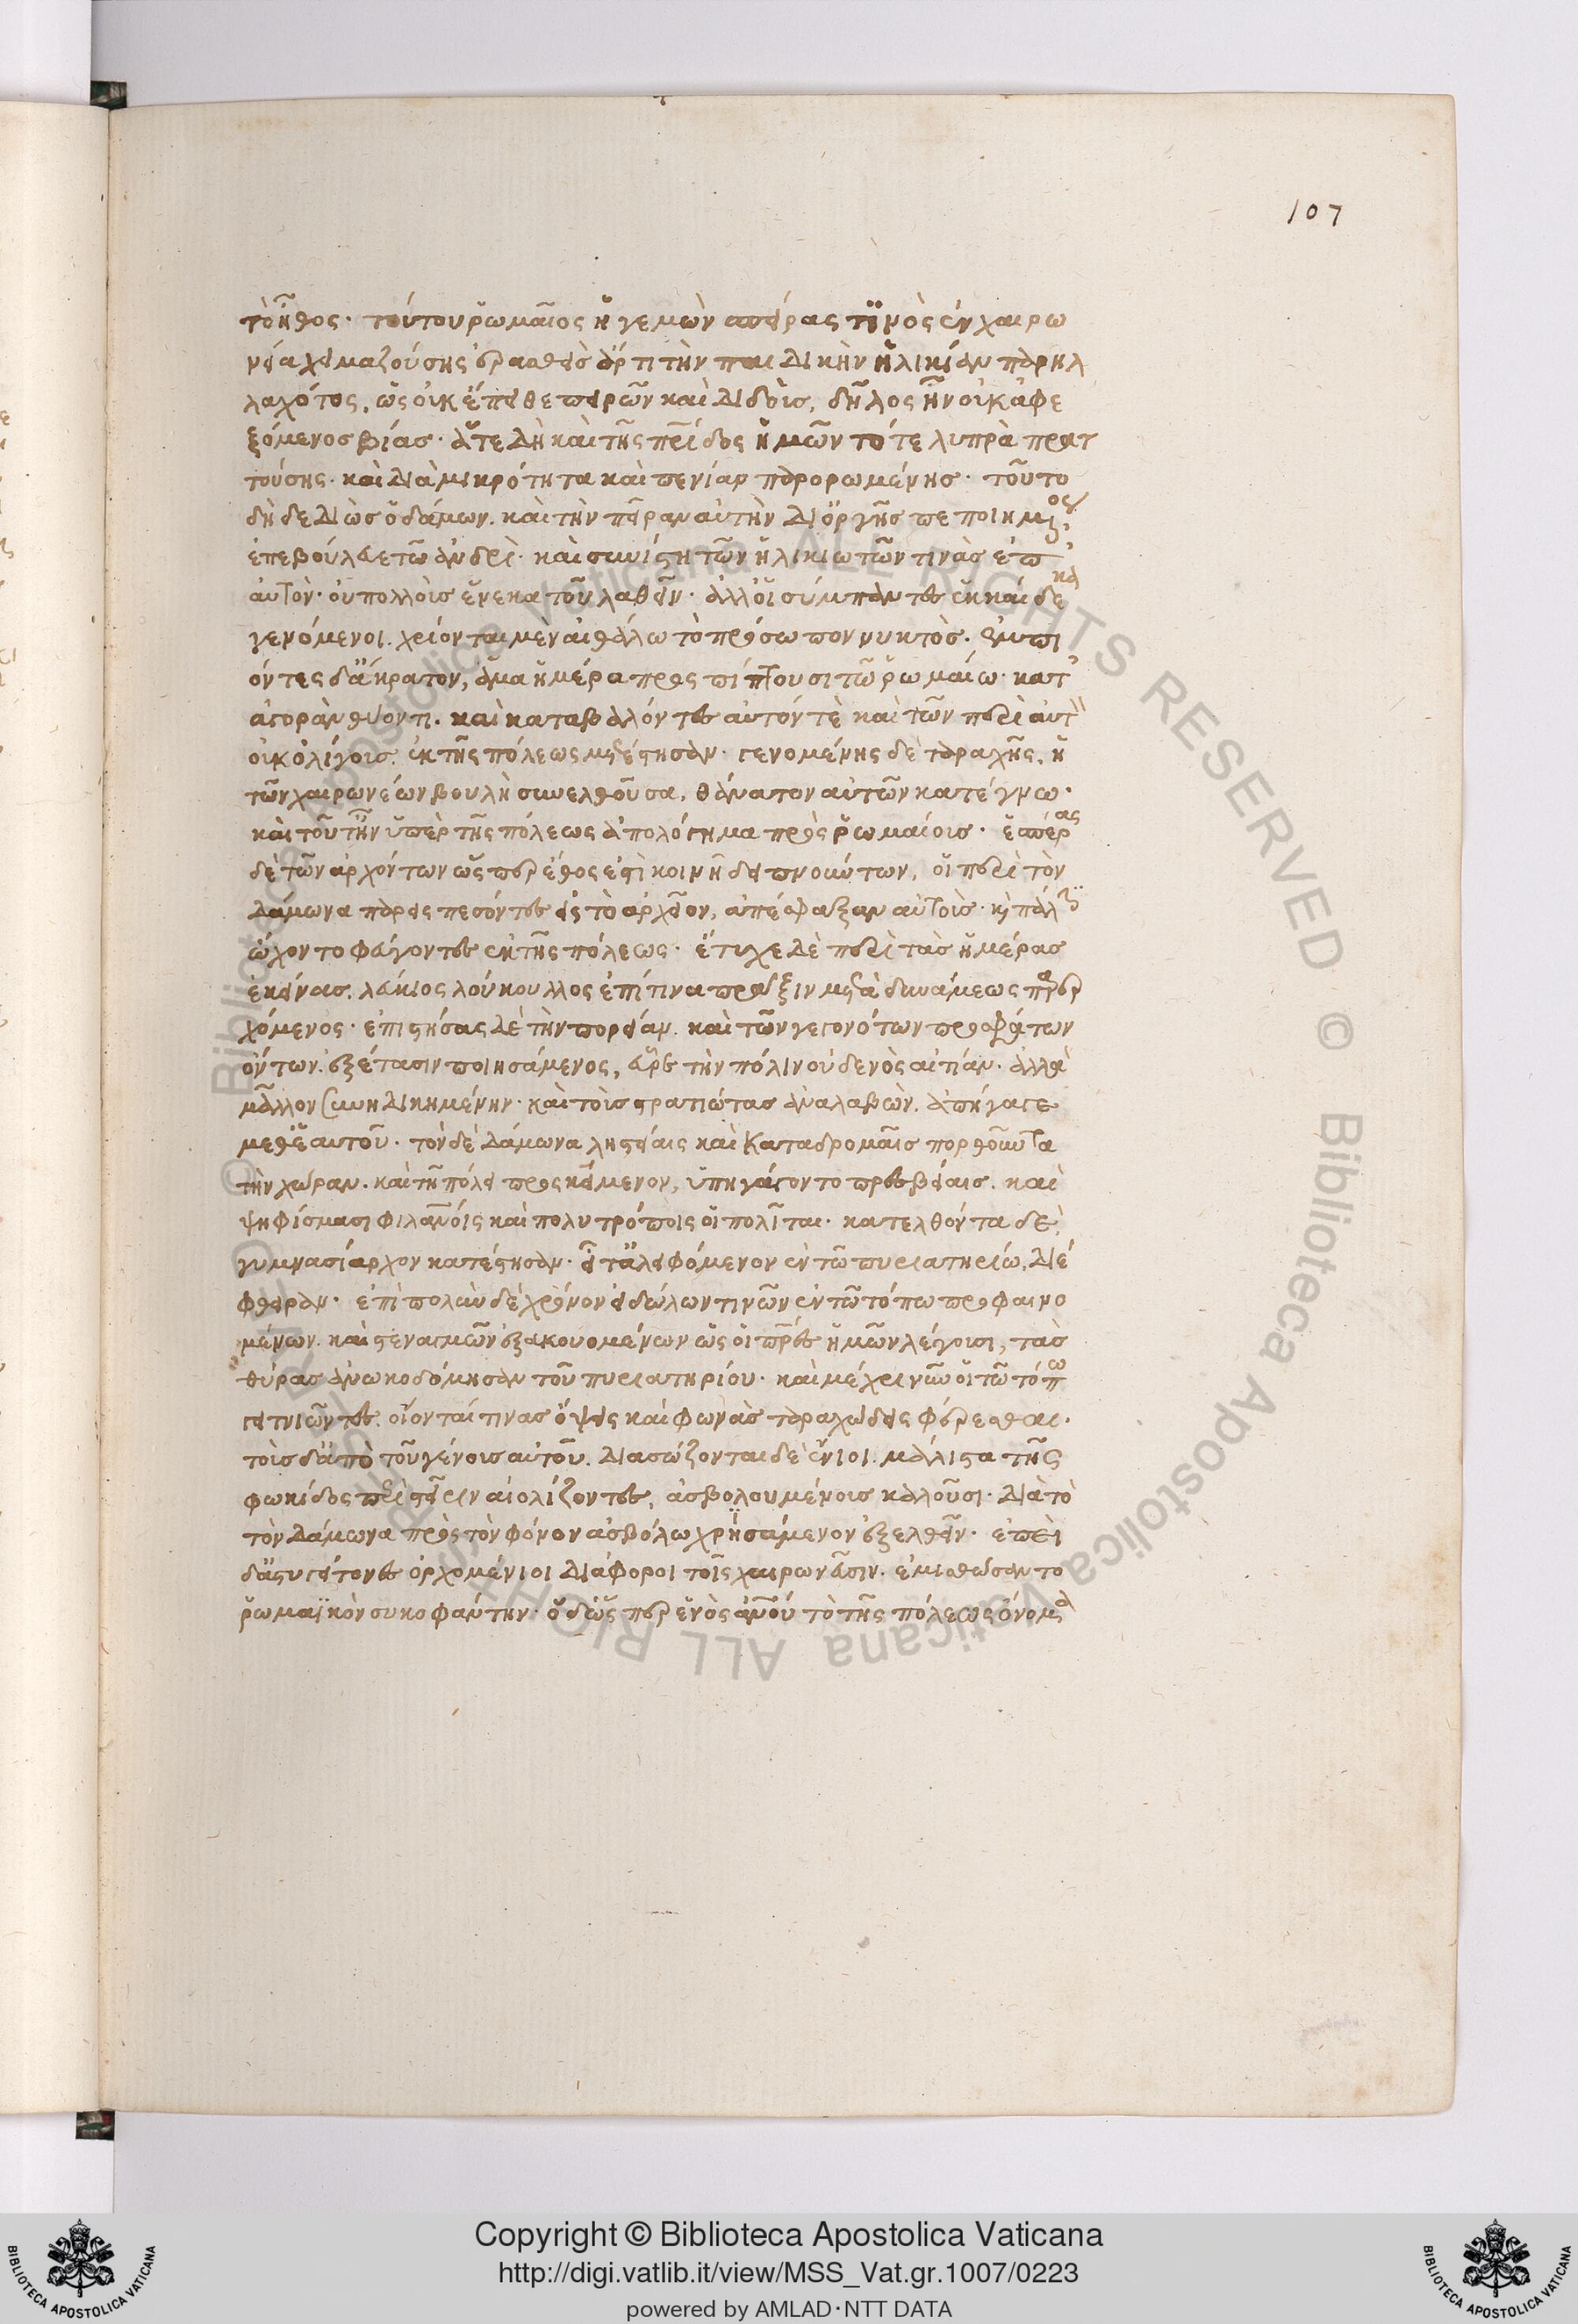 107
τὸ ἦθος· τούτου ῥωμαῖος ἡγεμὼν σπείρας τινὸς ἐν χαιρω
νεία χειμαζούσης ἐρασθεὶς ἄρτι τὴν παιδικὴν ἡλικίαν παρηλ
λαχότος, ὡς οὐκ ἔπειθε πειρῶν καὶ διδοὺς, δῆλος ἦν οὐκ ἀφε
ξόμενος βίας· ἅτε δὴ καὶ τῆς πρίδος ἡμῶν τότε λυπρὰ πρατ
τούσης· καὶ διὰ μικρότητα καὶ πενίαν παρορωμένης· τοῦτο
δὴ δεδιὼς ὁ δάμων. καὶ τὴν πεῖραν αὐτὴν δι' ὀργῆς πεποιημένος,
ἐπεβούλευε τῶ ἀνδρὶ· καὶ συνίστη τῶν ἡλικιωτῶν τινὰς ἐπ'
αὐτὸν· οὐ πολλοὺς ἕνεκα τοῦ λαθεῖν· ἀλλ' οἱ σύμπαντες ἑκκαίδεκα
γενόμενοι. χρίονται μὲν αἰθάλω τὸ πρόσωπον νυκτὸς. ἐμπι
όντες δ' ἄκρατον, ἅμα ἡμέρα προσπίπτουσι τῶ ῥωμαίω· κατ'
ἀγορὰν θύοντι. καὶ καταβαλόντες αὐτόν τὲ καὶ τῶν περὶ αὐτὸν
οὐκ ὀλίγους. ἐκ τῆς πόλεως μετέστησαν. γενομένης δὲ ταραχῆς, ἡ
τῶν χαιρωνέων βουλὴ συνελθοῦσα, θάνατον αὐτῶν κατέγνω·
καὶ τοῦτ' ἦν ὑπὲρ τῆς πόλεως ἀπολόγημα πρὸς ῥωμαίους· ἑσπέρας
δὲ τῶν ἀρχόντων ὥσπερ ἔθος ἐστὶ κοινῆ δειπνούντων, οἱ περὶ τὸν
δάμωνα παρεισπεσόντες εἰς τὸ ἀρχεῖον, ἀπέσφαξαν αὐτοὺς· καὶ πάλιν
ᾤχοντο φεύγοντες ἐκ τῆς πόλεως· ἔτυχε δὲ περὶ τὰς ἡμέρας
ἐκείνας. λεύκιος λούκουλλος ἐπί τινα πρᾶξιν μετὰ δυνάμεως παρερ
χόμενος· ἐπιστήσας δὲ τὴν πορείαν. καὶ τῶν γεγονότων προσφάτων
ὄντων. ἐξέτασιν ποιησάμενος, εὗρε τὴν πόλιν οὐδενὸς αἰτίαν. ἀλλὰ
μᾶλλον συνηδικημένην· καὶ τοὺς στρατιώτας ἀναλαβὼν. ἀπήγαγε
μεθ' ἑαυτοῦ· τὸν δὲ δάμωνα ληστείαις καὶ καταδρομαῖς πορθοῦντα
τὴν χώραν. καὶ τῆ πόλει προσκείμενον, ὑπηγάγοντο πρεσβείαις. καὶ
ψηφίσμασι φιλανοίς καὶ πολυτρόποις οἱ πολῖται. κατελθόντα δὲ,
γυμνασίαρχον κατέστησαν· εἶτ' ἀλειφόμενον ἐν τῶ πυριατηρίω, διέ
φθειραν· ἐπὶ πολὺν δὲ χρόνον εἰδώλων τινῶν ἐν τῶ τόπω προφαινο
μένων. καὶ στεναγμῶν ἐξακουομένων ὡς οἱ πρες ἡμῶν λέγουσι, τὰς
θύρας ἀνωκοδόμησαν τοῦ πυριατηρίου· καὶ μέχρι νῦν οἱ τῶ τόπω
γειτνιῶντες. οἴονταί τινας ὄψεις καὶ φωνὰς ταραχώδεις φέρεσθαι.
τοὺς δ' ἀπὸ τοῦ γένους αὐτοῦ. διασώζονται δὲ ἔνιοι. μάλιστα τῆς
φωκίδος περὶ στείριν αἰολίζοντες, ἀσβολουμένους καλοῦσι. διὰ τὸ
τὸν δάμωνα πρὸς τὸν φόνον ἀσβόλω χρησάμενον ἐξελθεῖν· ἐπεὶ
δ' ἀστυγείτονες ὀρχομένιοι διάφοροι τοῖς χαιρωνεῦσιν. ἐμισθώσαντο
ῥωμαϊκὸν συκοφάντην· ὁ δ' ὥσπερ ἑνὸς ἀνοῦ τὸ τῆς πόλεως ὄνομα
Copyright © Biblioteca Apostolica Vaticana
http://digi.vatlib.it/view/MSS_Vat.gr.1007/0223
powered by AMLAD·NTT DATA